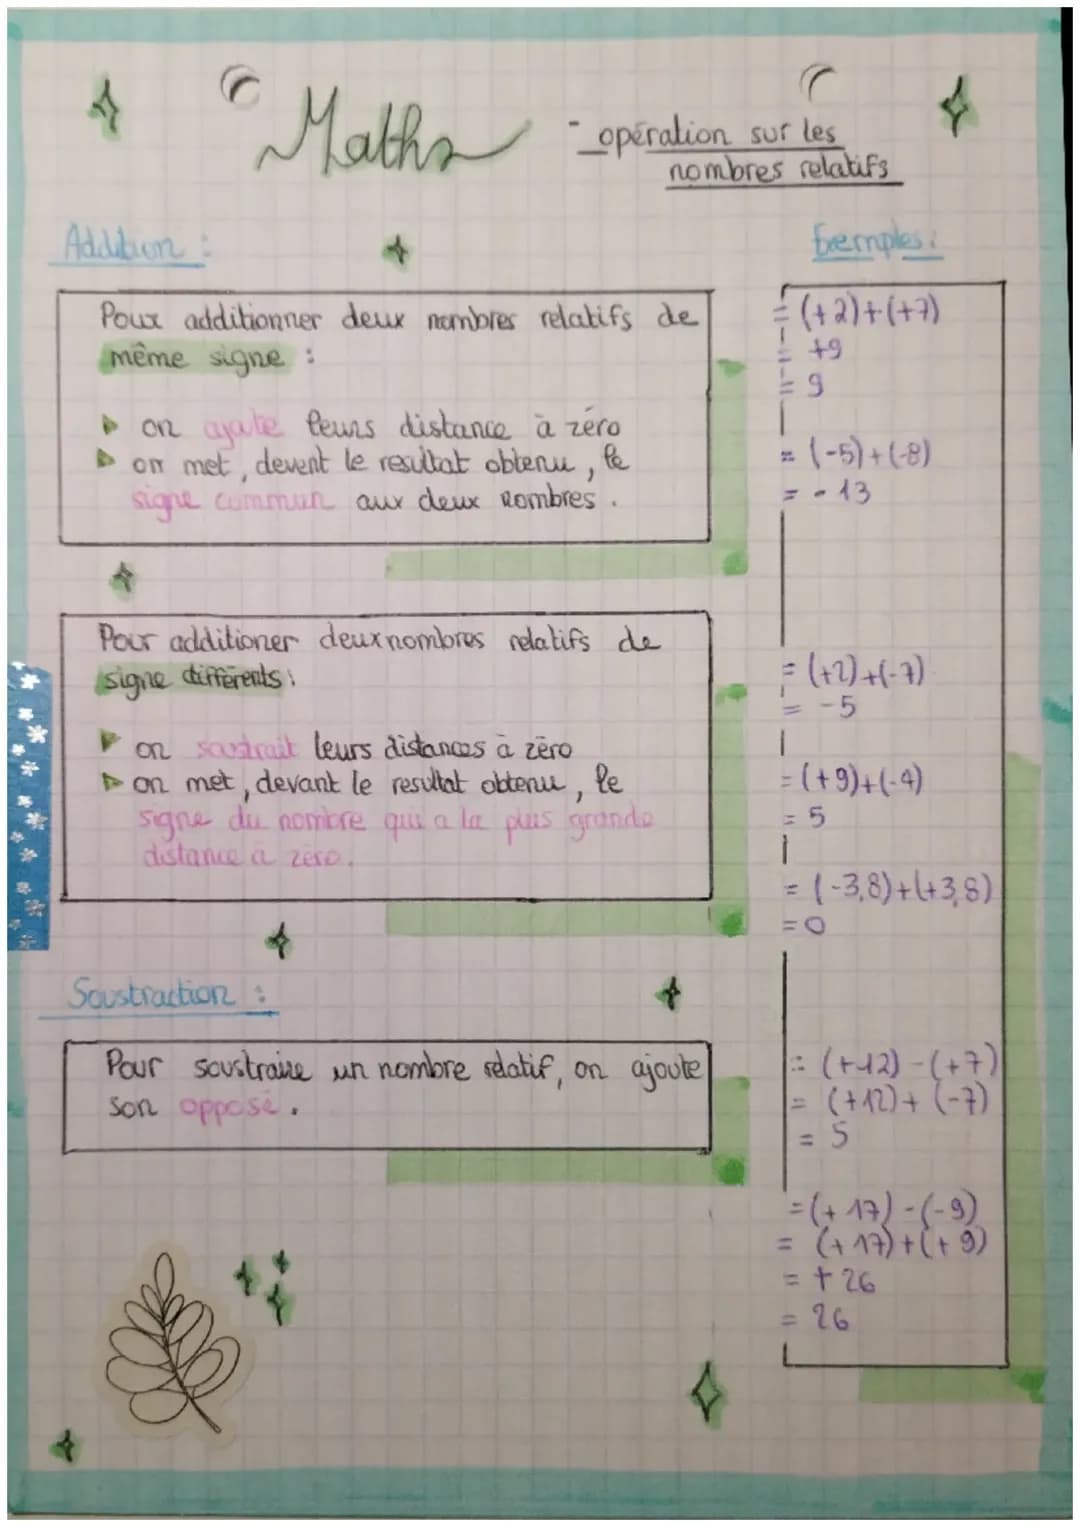 Maths
- opération sur les
nombres relatifs
Addition :
Pour additionner deux nombres relatifs de
même signe :
on ajoute leurs distance à zéro
on met, devent le resultat obtenu, le
signe commun aux deux nombres.
Pour additioner deux nombres relatifs de
signe différents :
on soustrait leurs distances à zéro
on met, devant le resultat obtenu, le
signe du nombre qui a la plus grande
distance à zéro.
Soustraction :
Pour soustraire un nombre relatif, on ajoute
son opposé.
Exemples :
= (+2)+(+7)
= +9
= 9
= (-5)+(-8)
= -13
= (+2)+(-7)
= -5
= (+9)+(-4)
= 5
= (-3,8)+(+3,8)
= 0
= (+12)-(+7)
= (+12)+(-7)
= 5
= (+17)-(-9)
= (+17)+(+9)
= +26
= 26